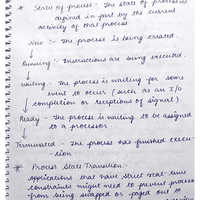 * State of process :- The state of process is
defined in part by the current
activity of that process
New :- The process is being created.
Running :- Instructions are being executed.
waiting - The process is waiting for some
event to occur (such as an I/O
completion or receptions of signal).
Ready - The process is waiting to be assigned
to a processor
Terminated :- The process has finished execu-
tion
* Process State Transition:-
Applications that have strict real-time
constraints might need to prevent process
from being swapped or paged out to